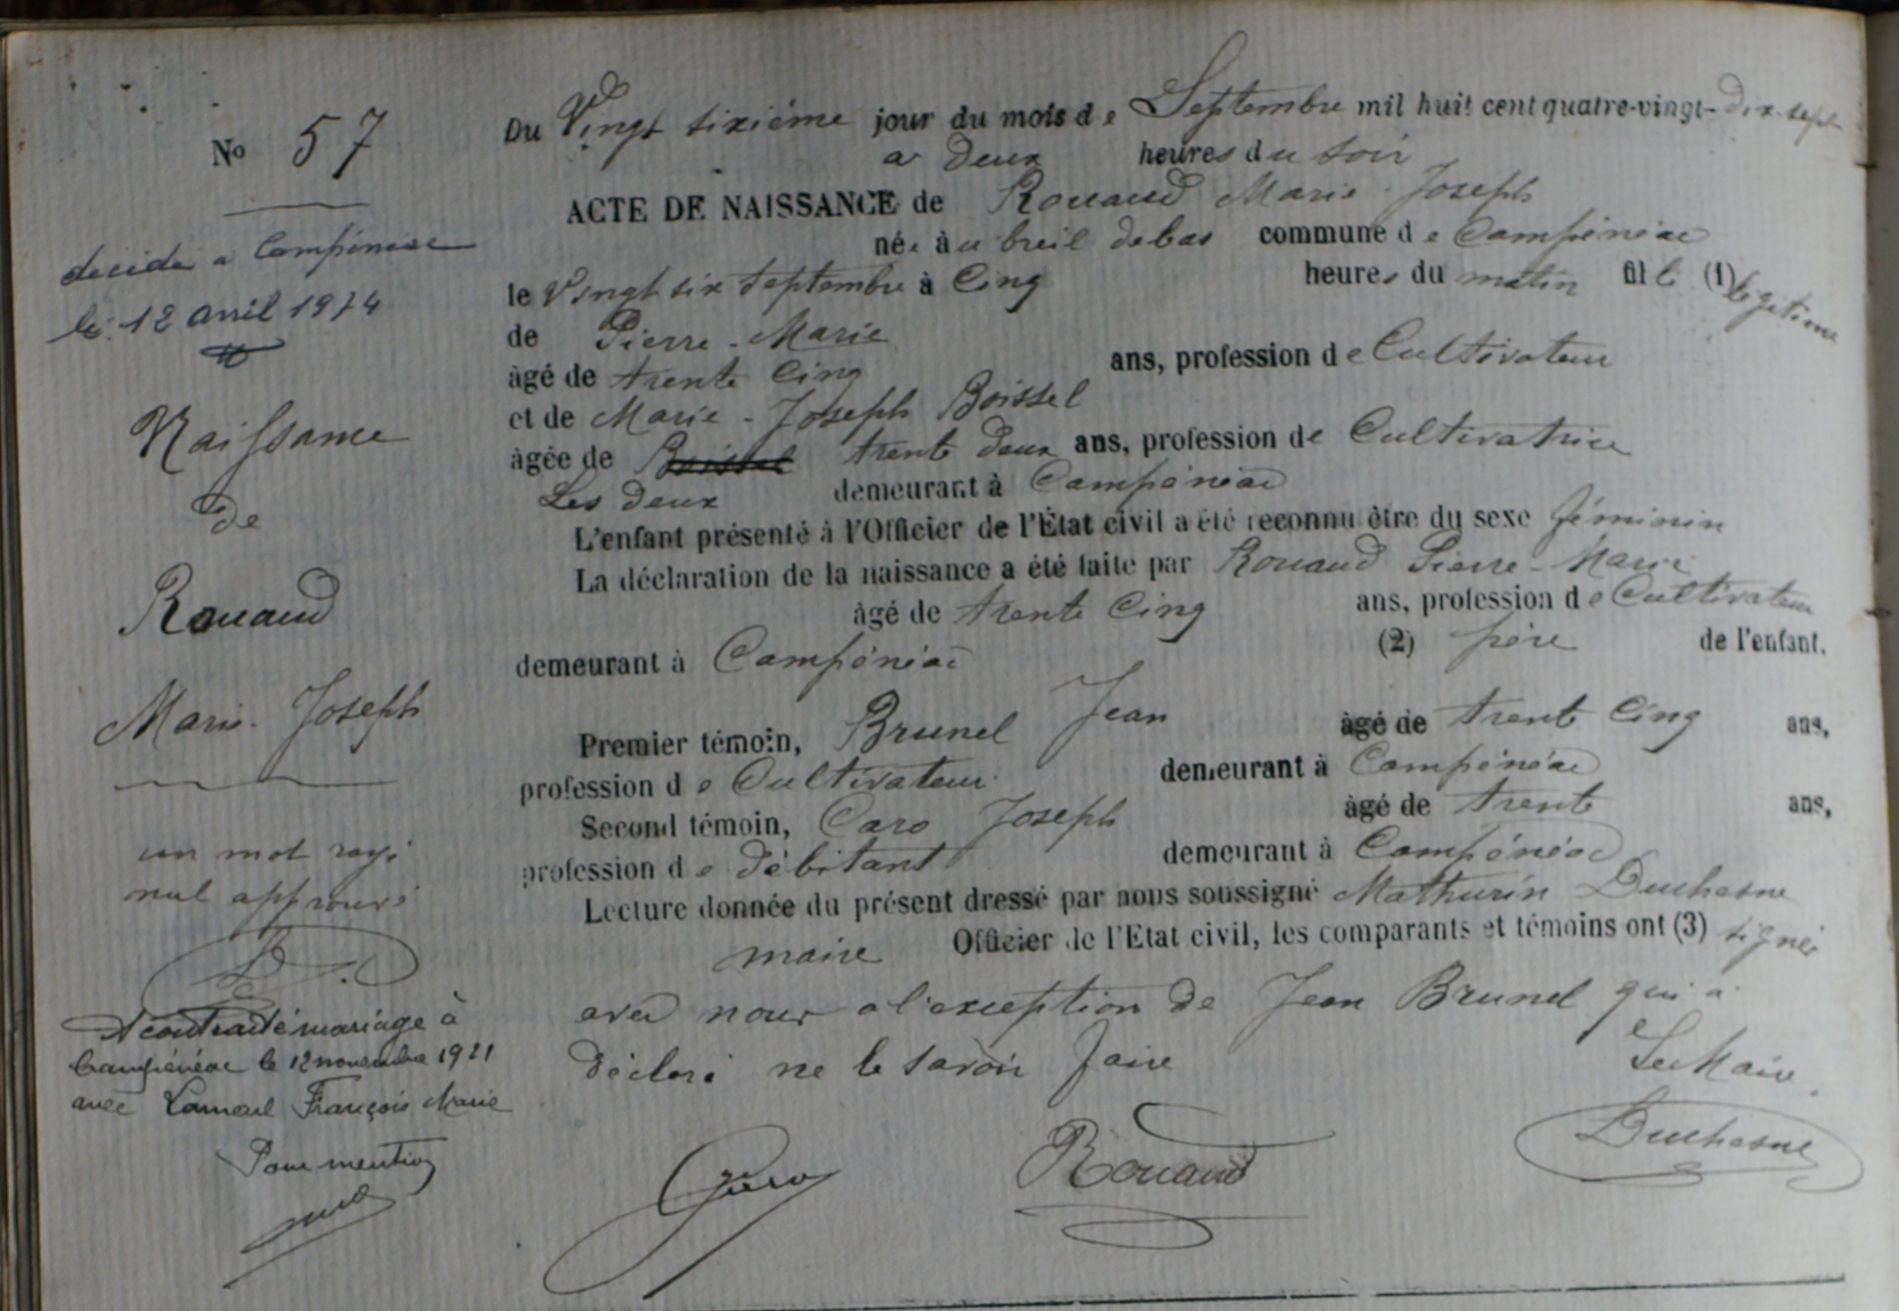 No 57
decidée a Campénéac
le 12 avril 1974
Naissance
de
Rouaud
Marie-Joseph
un mot rayé
nul approuvé
D.
A contracté mariage à
Campénéac le 12 novembre 1921
avec François Marie
Pour mention
Du Vingt sixième jour du mois de Septembre mil huit cent quatre-vingt-dix-sept
a deux heures du soir
ACTE DE NAISSANCE de Rouaud Marie-Joseph
née au breil de bas commune de Campénéac
le Vingt six Septembre à Cinq heures du matin fille (1) légitime
de Pierre-Marie
âgé de trente Cinq ans, profession de Cultivateur
et de Marie-Joseph Boissel
âgée de Boissel trente deux ans, profession de Cultivatrice
Les deux demeurant à Campénéac
L'enfant présenté à l'Officier de l'État civil a été reconnu être du sexe féminin
La déclaration de la naissance a été faite par Rouaud Pierre-Marie
âgé de trente Cinq ans, profession de Cultivateur
demeurant à Campénéac (2) père de l'enfant.
Premier témoin, Brunel Jean âgé de trente Cinq ans,
profession de Cultivateur demeurant à Campénéac
Second témoin, Caro Joseph âgé de trente ans,
profession de débitant demeurant à Campénéac
Lecture donnée du présent dressé par nous soussigné Mathurin Duchesne
maire Officier de l'Etat civil, les comparants et témoins ont (3) signés
avec nous a l'exception de Jean Brunel qui a
déclaré ne le savoir faire
Le Maire
Caro Rouaud Duchesne